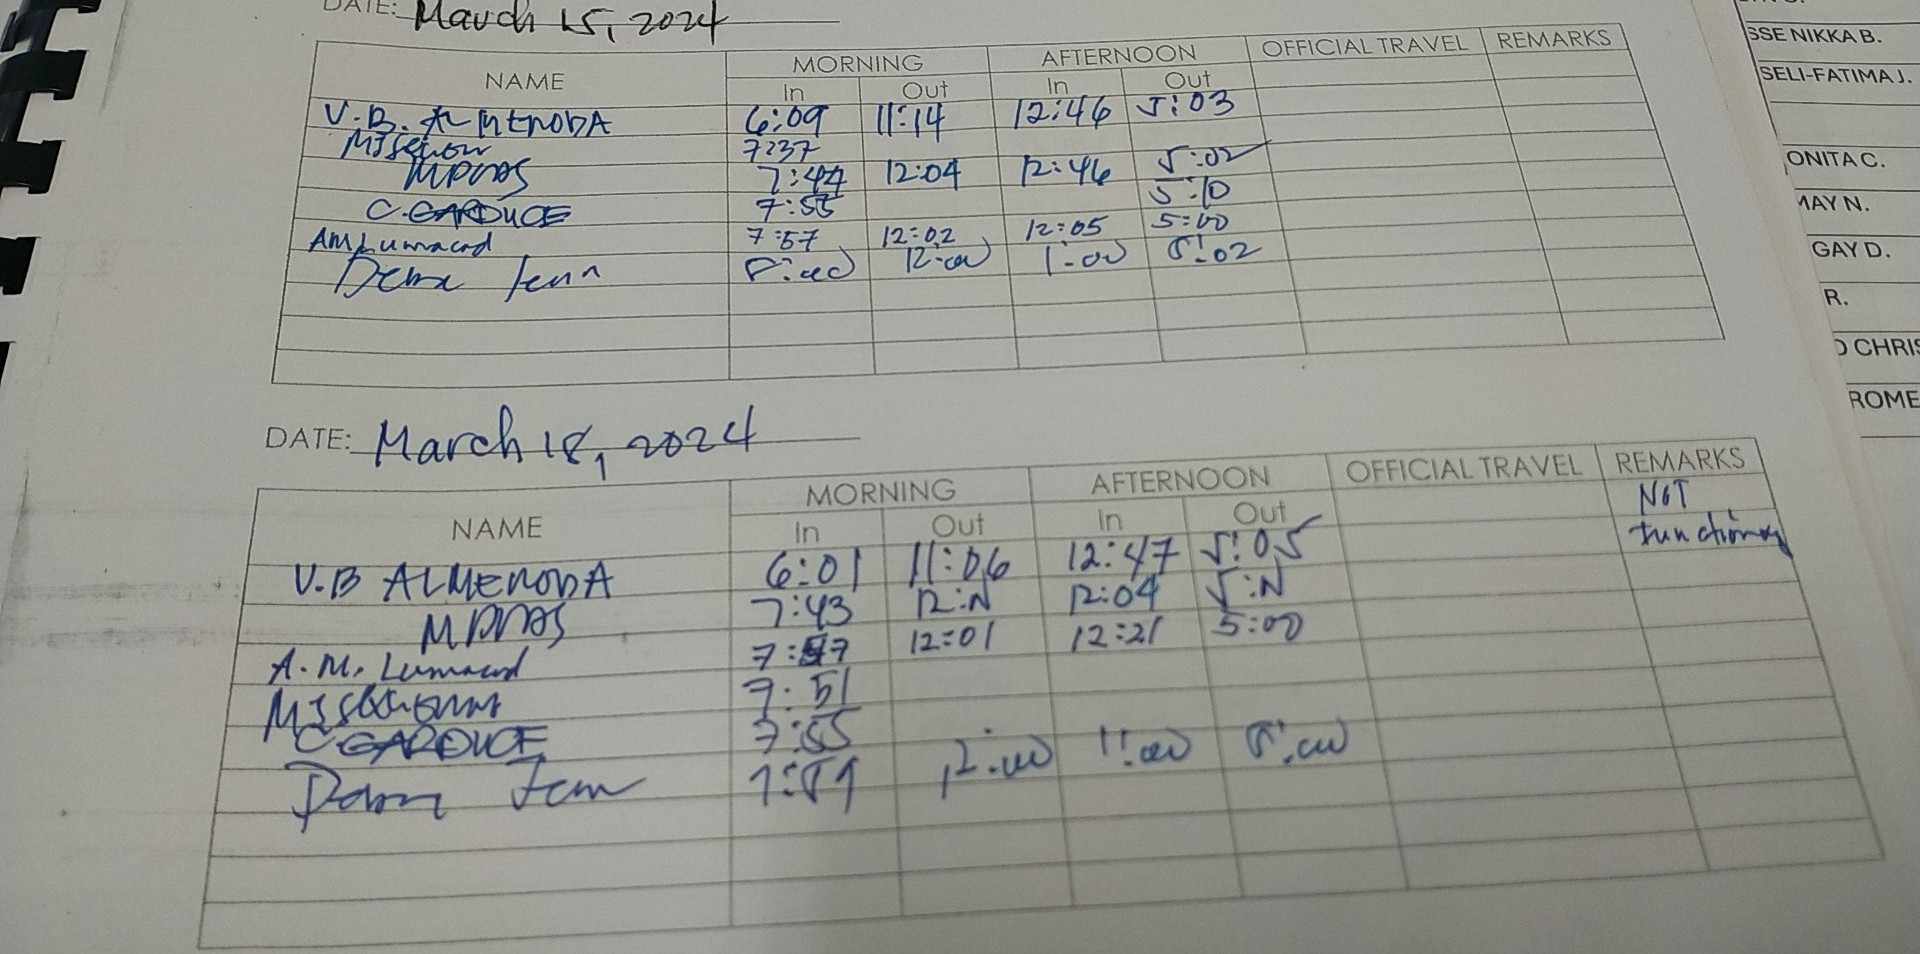 DATE: March 15, 2024
NAME MORNING AFTERNOON OFFICIAL TRAVEL REMARKS
In Out In Out
V.B. ALMENODA 6:09 11:14 12:46 5:03
7:37
7:44 12:04 12:46 5:02
C. GARDUCE 7:55 5:10
AM Lumacad 7:57 12:02 12:05 5:00
8:00 12:00 1:00 5:02
DATE: March 18, 2024
NAME MORNING AFTERNOON OFFICIAL TRAVEL REMARKS
In Out In Out NOT
V.B ALMENODA 6:01 11:06 12:47 5:05 functioning
7:43 12:N 12:04 5:N
A.M. Lumacad 7:57 12:01 12:21 5:00
7:51
C GARDUCE 7:55
12:00 1:00 5:00
SSE NIKKA B.
SELI-FATIMA J.
ONITA C.
MAY N.
GAY D.
R.
O CHRIS
ROME